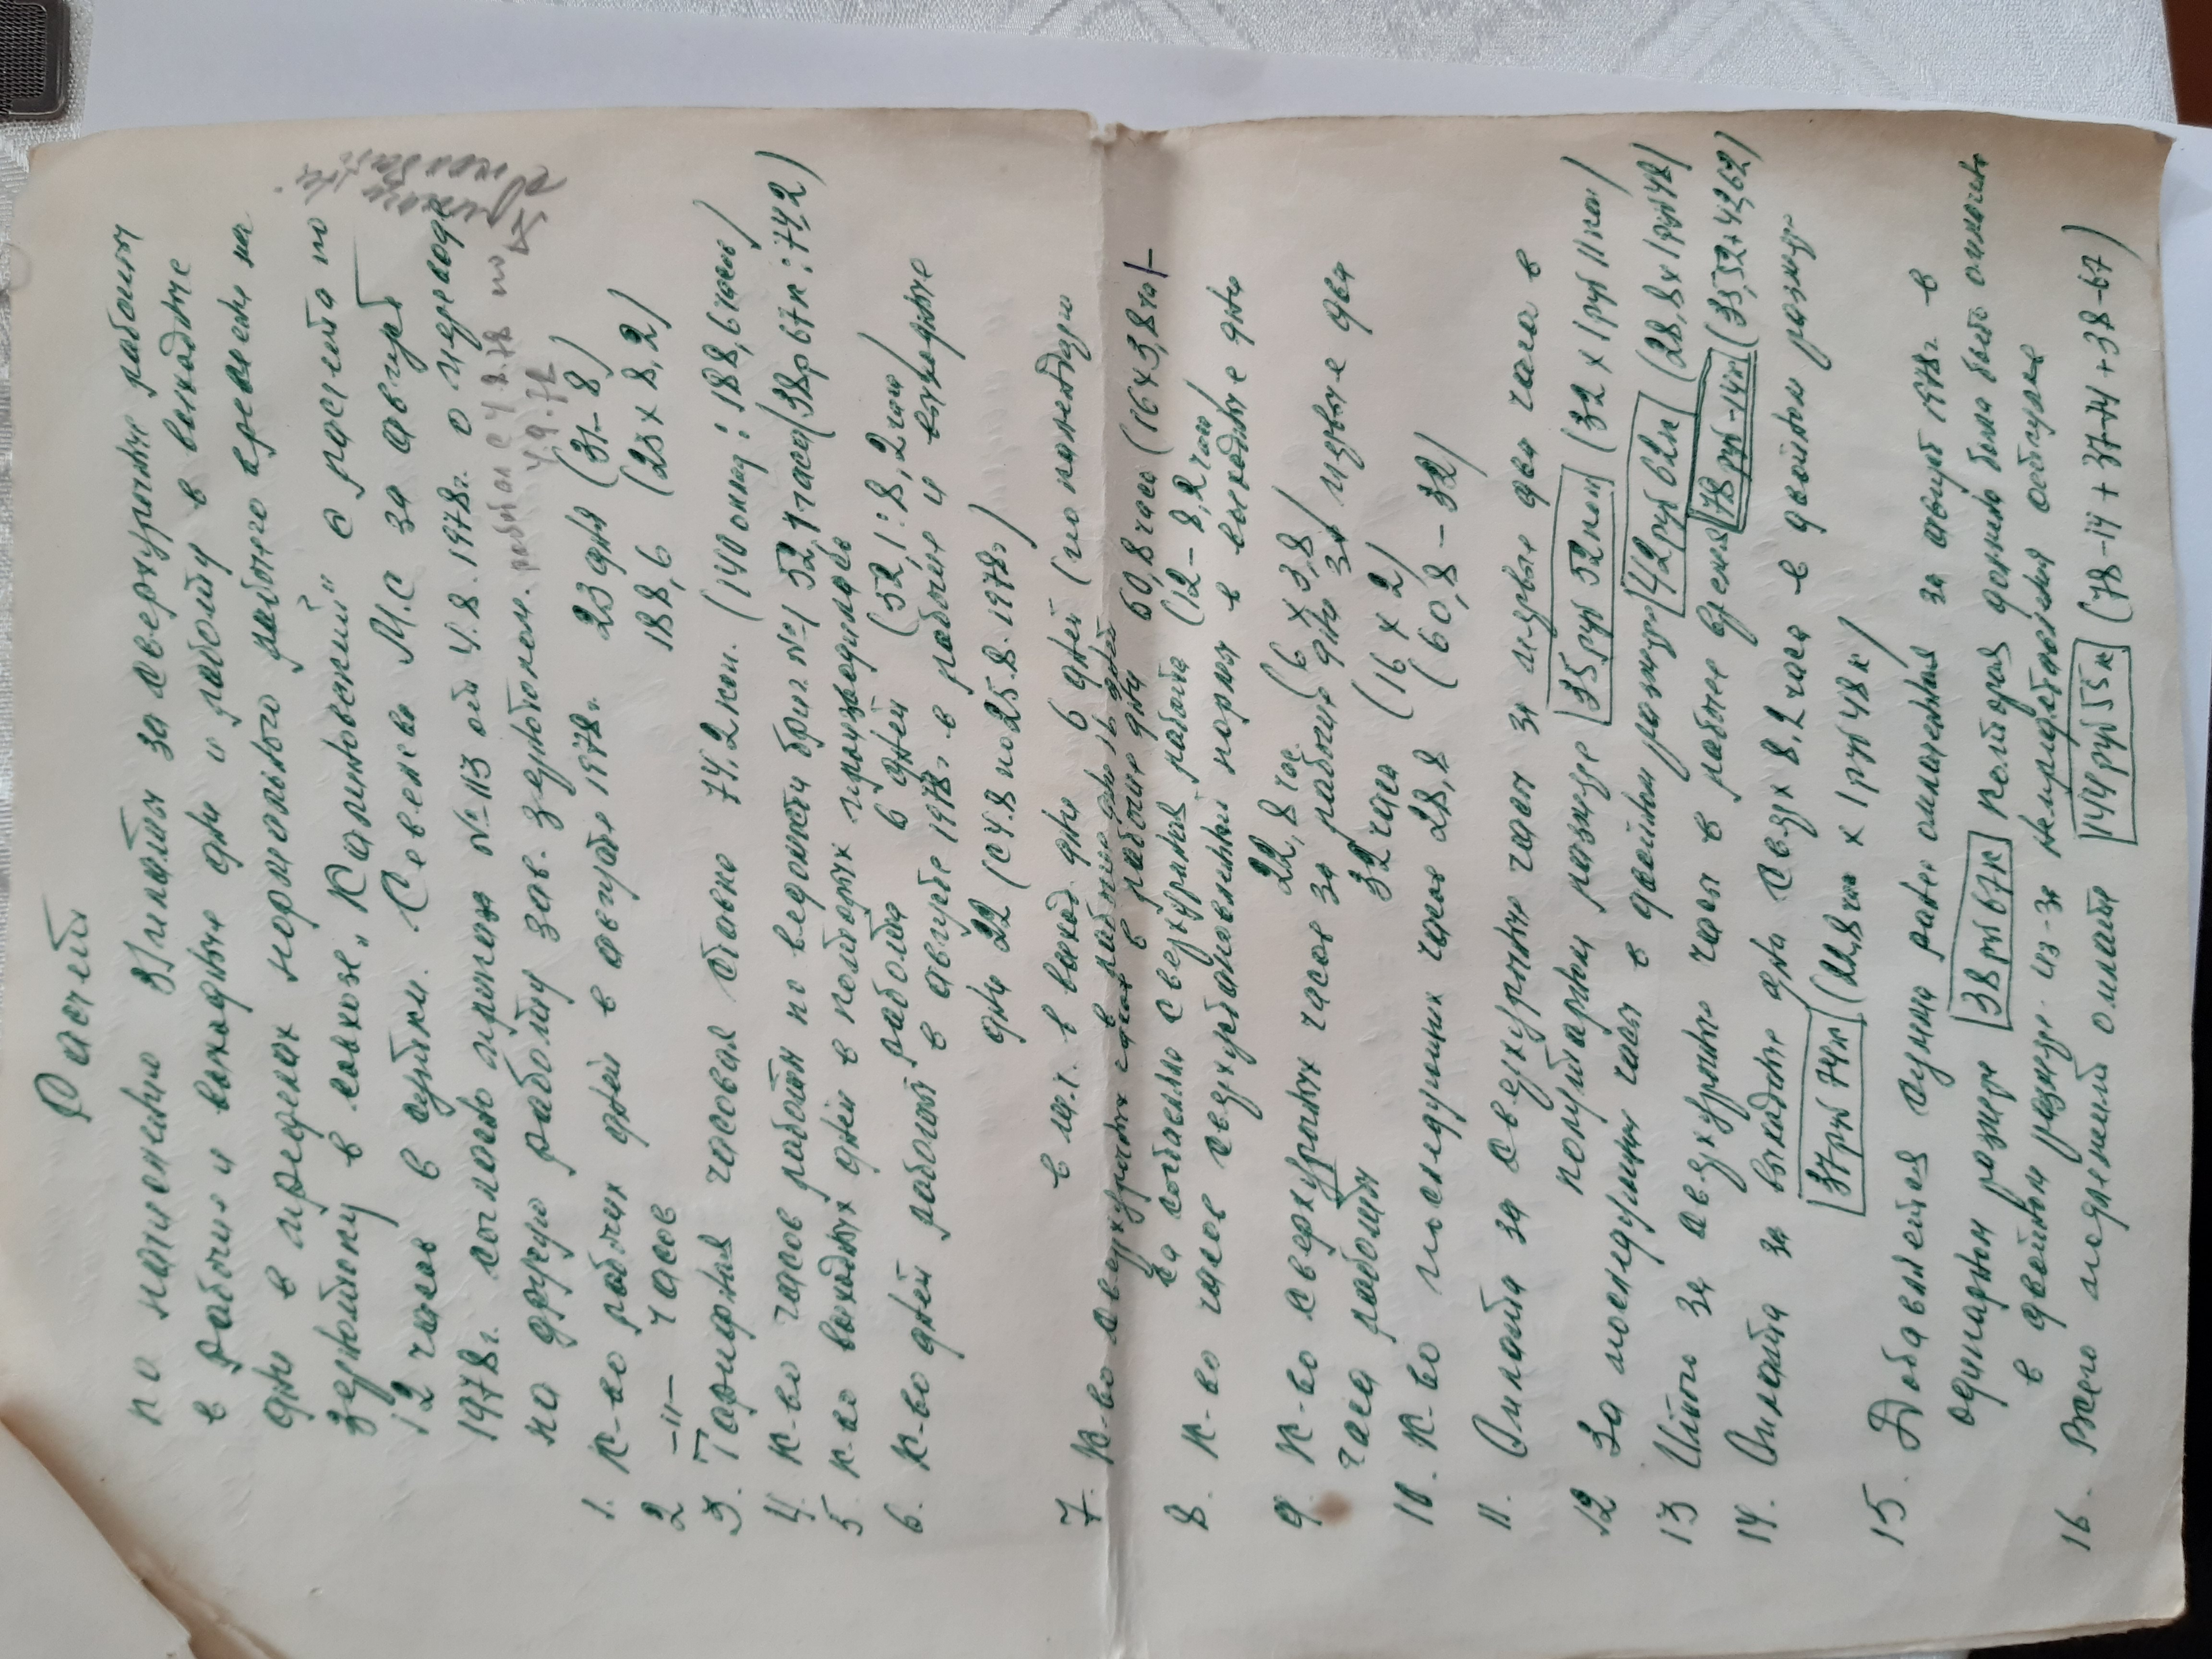 Расчет
по начислению зарплаты за сверхурочные работы
в рабочие и выходные дни и работу в выходные
дни в пределах нормального рабочего времени на
зертоку в совхозе "Калитовский" с расчета по
12 часов в сутки. Севенсво М.С за август
1978г. согласно приказа № 113 от 4.8.1978г. о переводе
на другую работу зав. зертоком. работал с 4.8.78 по
4.9.78
1. к-во рабочих дней в августе 1978г. 23 дня (31-8)
2 -"- часов 188,6 (23 х 8,2)
3. Тарифная часовая ставка 74,2 коп. (140 оклад : 188,6 часов)
4. к-во часов работы по ведомости бриг. №1 52,1 часа (38р 67к : 74,2)
5 к-во выходных дней в которых производилась
работа 6 дней (52,1 : 8,2 часа)
6. к-во дней работы в августе 1978г. в рабочие и выходные
дни 22 (с 4.8 по 25.8.1978г)
в т.ч. в выход. дни 6 дней (по календарю
в рабочие дни 16 дней
7. к-во сверхурочных часов в рабочие дни 60,8 часа (16 х 3,8 час)
8. к-во часов сверхустановленной нормы в выходные дни
22,8 час (6 х 3,8)
9 к-во сверхурочных часов за рабочие дни за первые два
часа работы 32 часа (16 х 2)
10. к-во последующих часов 28,8 (60,8 - 32)
11. Оплата за сверхурочные часы за первые два часа в
полуторном размере 35 руб 52 коп (32 х 1 руб 11 коп)
12 За последующие часы в двойном размере 42 руб 62к (28,8 х 1 руб 48)
13 Итого за сверхурочные часы в рабочее время 78 руб-14к (35,52+42,62)
14. Оплата за выходные дни сверх 8,2 часа в двойном размере
37 руб 74к (22,8 час х 1 руб 48 к)
15. Добавляется сумма ранее оплаченная за август 1978г. в
одинарном размере 38 руб 67к которая должна была быть оплачена
в двойном размере из-за непредоставления отгулов
16. Всего подлежит оплате 144 руб 55 к (78-14 + 37-74 + 38-67)